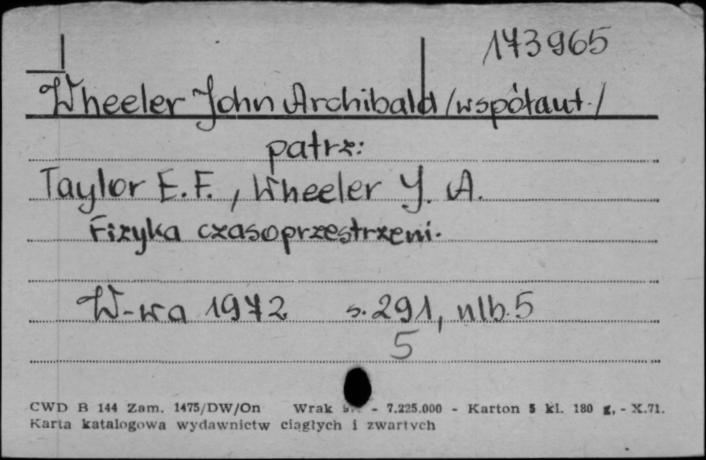 173965
Wheeler John Archibald /współaut./
patrz:
Taylor E. F., Wheeler J. A.
Fizyka czasoprzestrzeni.
W-wa 1972 s. 291, nlb. 5
5
CWD B 144 Zam. 1475/DW/On Wrak - 7.225.000 - Karton 5 kl. 180 g, - X.71.
Karta katalogowa wydawnictw ciągłych i zwartych